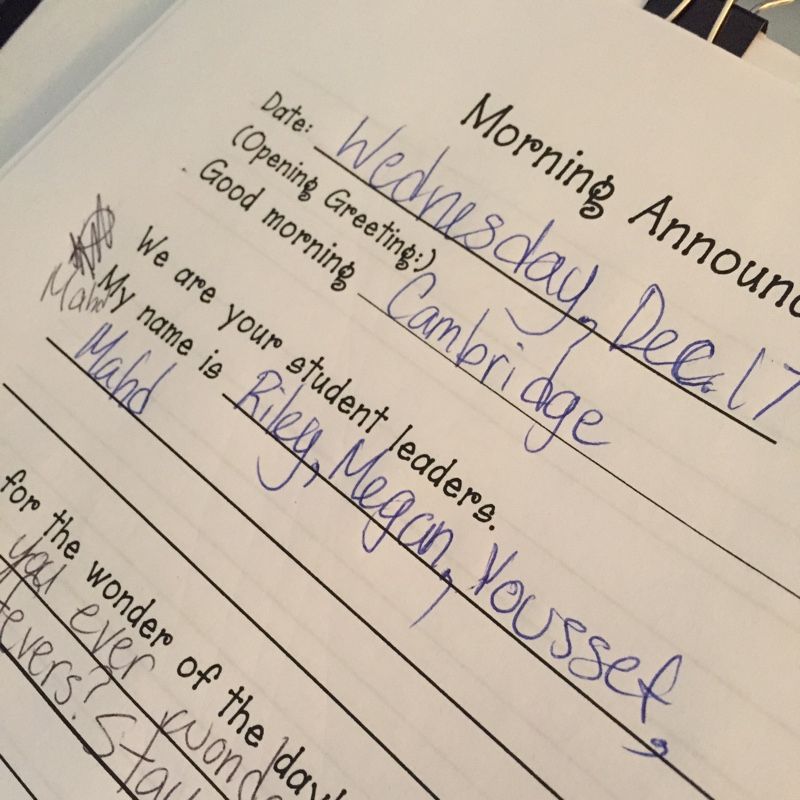 Morning Announc
Date: Wednesday, Dec. 17
(Opening Greeting:)
Good morning Cambridge
We are your student leaders.
Mahd
My name is Riley, Megan, Youssef,
Mahd
for the wonder of the day!
you ever wonde
tevers? Stay